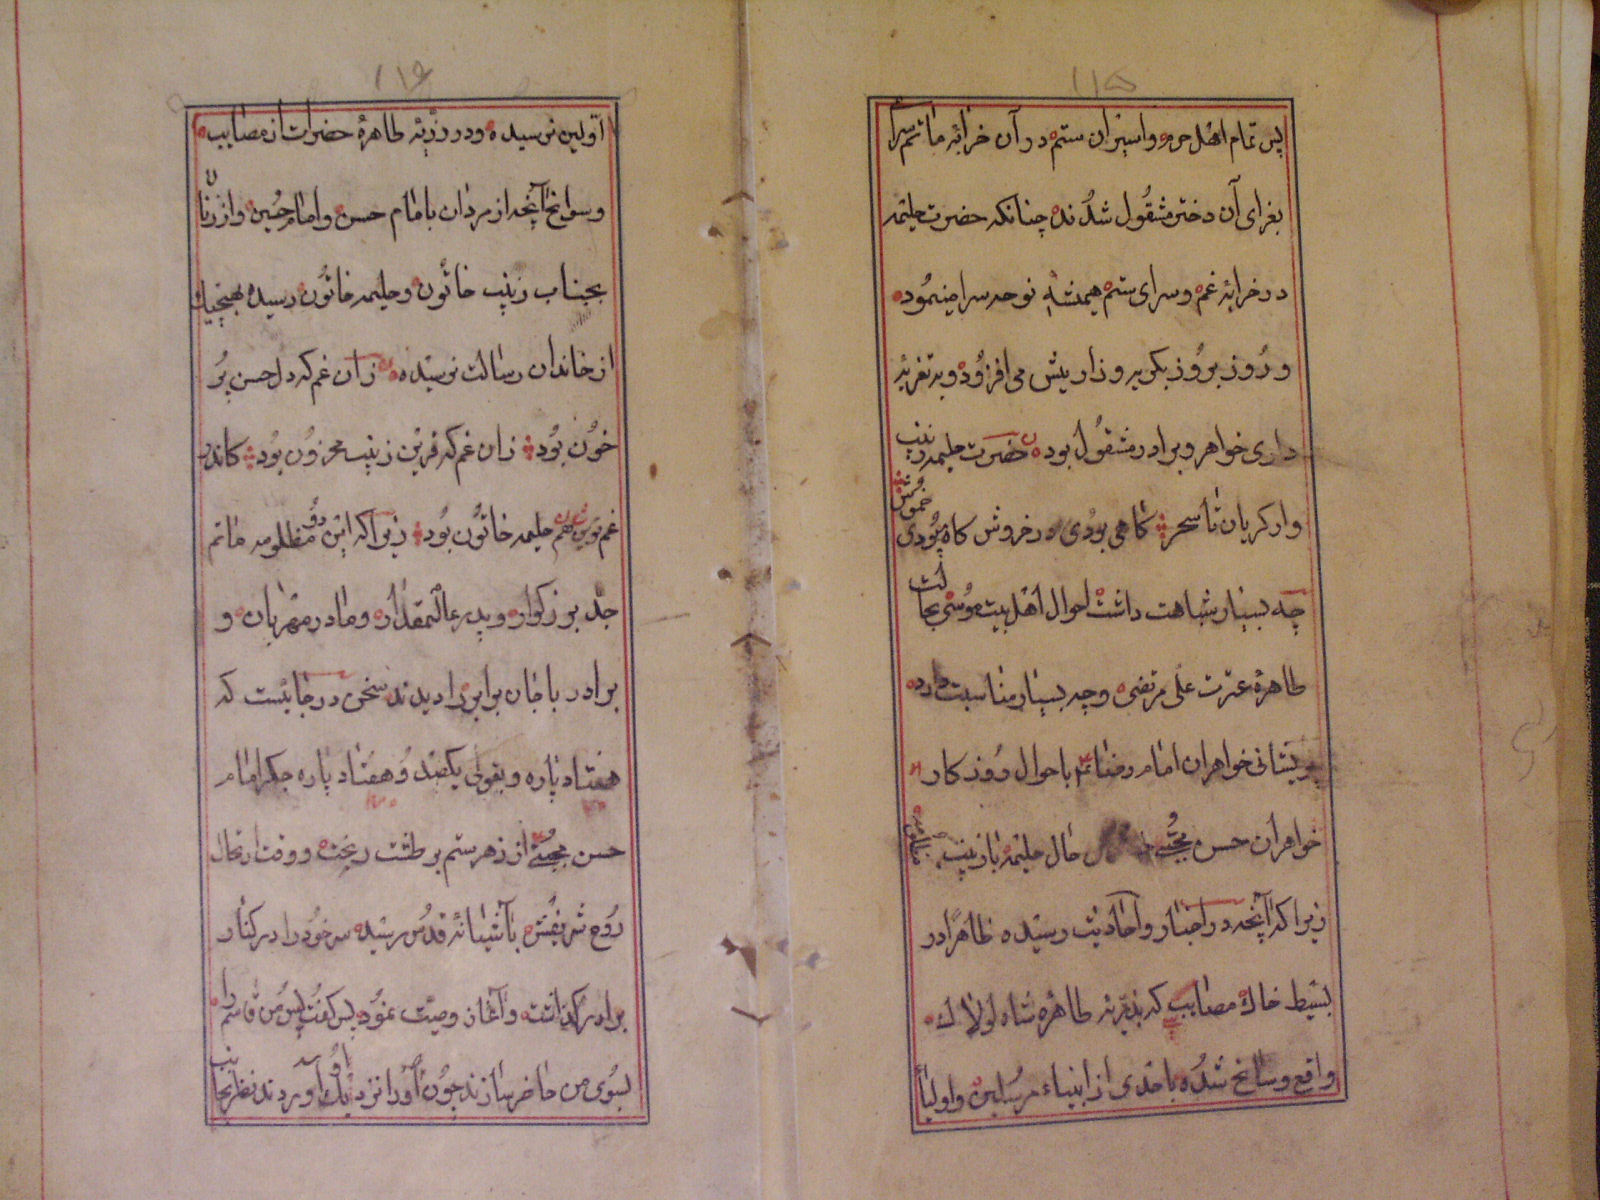 ۱۱۵
پس تمام اهل حرم و اسیران ستم در آن خرابه ماتم سرا
بعزای آن دختر مشغول شدند چنانکه حضرت حلیمه
در خرابهٔ غم و سرای ستم همیشه نوحه سرا مینمود
و روز بروز بگریه و زاریش می افزود و بتعزیه
داری خواهر و برادر مشغول بوده حضرت حلیمه زینب
وار گریان تا سحر گاهی بودی در خروش گاه بودی خموش
چه بسیار شباهت داشت احوال اهلبیت موسی بحالت
طاهرهٔ عترت علی مرتضی و چه بسیار مناسبت دارد
پریشانی خواهران امام رضا با حوال روزکار
خواهران حسن مجتبی حال حلیمه با زینب
زیرا که آنچه در اخبار و احادیث رسیده ظاهرًا در
بسیط خاک مصایب که بذریهٔ طاهرهٔ شاه لولاک
واقع و سانح شده باحدی از انبیاء مرسلین و اولیاء
۱۱۶
اوّلین نرسیده و در ذریّهٔ طاهرهٔ حضرات از مصایب
و سوانح آنچه از مردان بامام حسن و امام حسین و از زنان
بجناب زینب خاتون و حلیمه خاتون رسیده بهیچیک
از خاندان رسالت نرسیده زان غم که دل حسن پر
خون بود زان غم که قرین زینب محزون بود کاندر
غم حلیمه خاتون بود زیرا که این دو مظلومه ماتم
جد بزرکوار و پدر عالیمقدار و مادر مهربان و
برادر با جان برابر را دیدند سخن در جائیست که
هفتاد پاره و بقولی یکصد و هفتاد پاره جکر امام
حسن مجتبی از زهر ستم بر طشت ریخت و وقت ارتحال
روح شریفش بآشیانهٔ قدس رسیده سر خود را در کنار
برادر گذاشت و آغاز وصیّت نمود پس گفت پس من قاسم را
بسوی من حاضر سازند چون او را نزدیک آوردند نظر بجانب